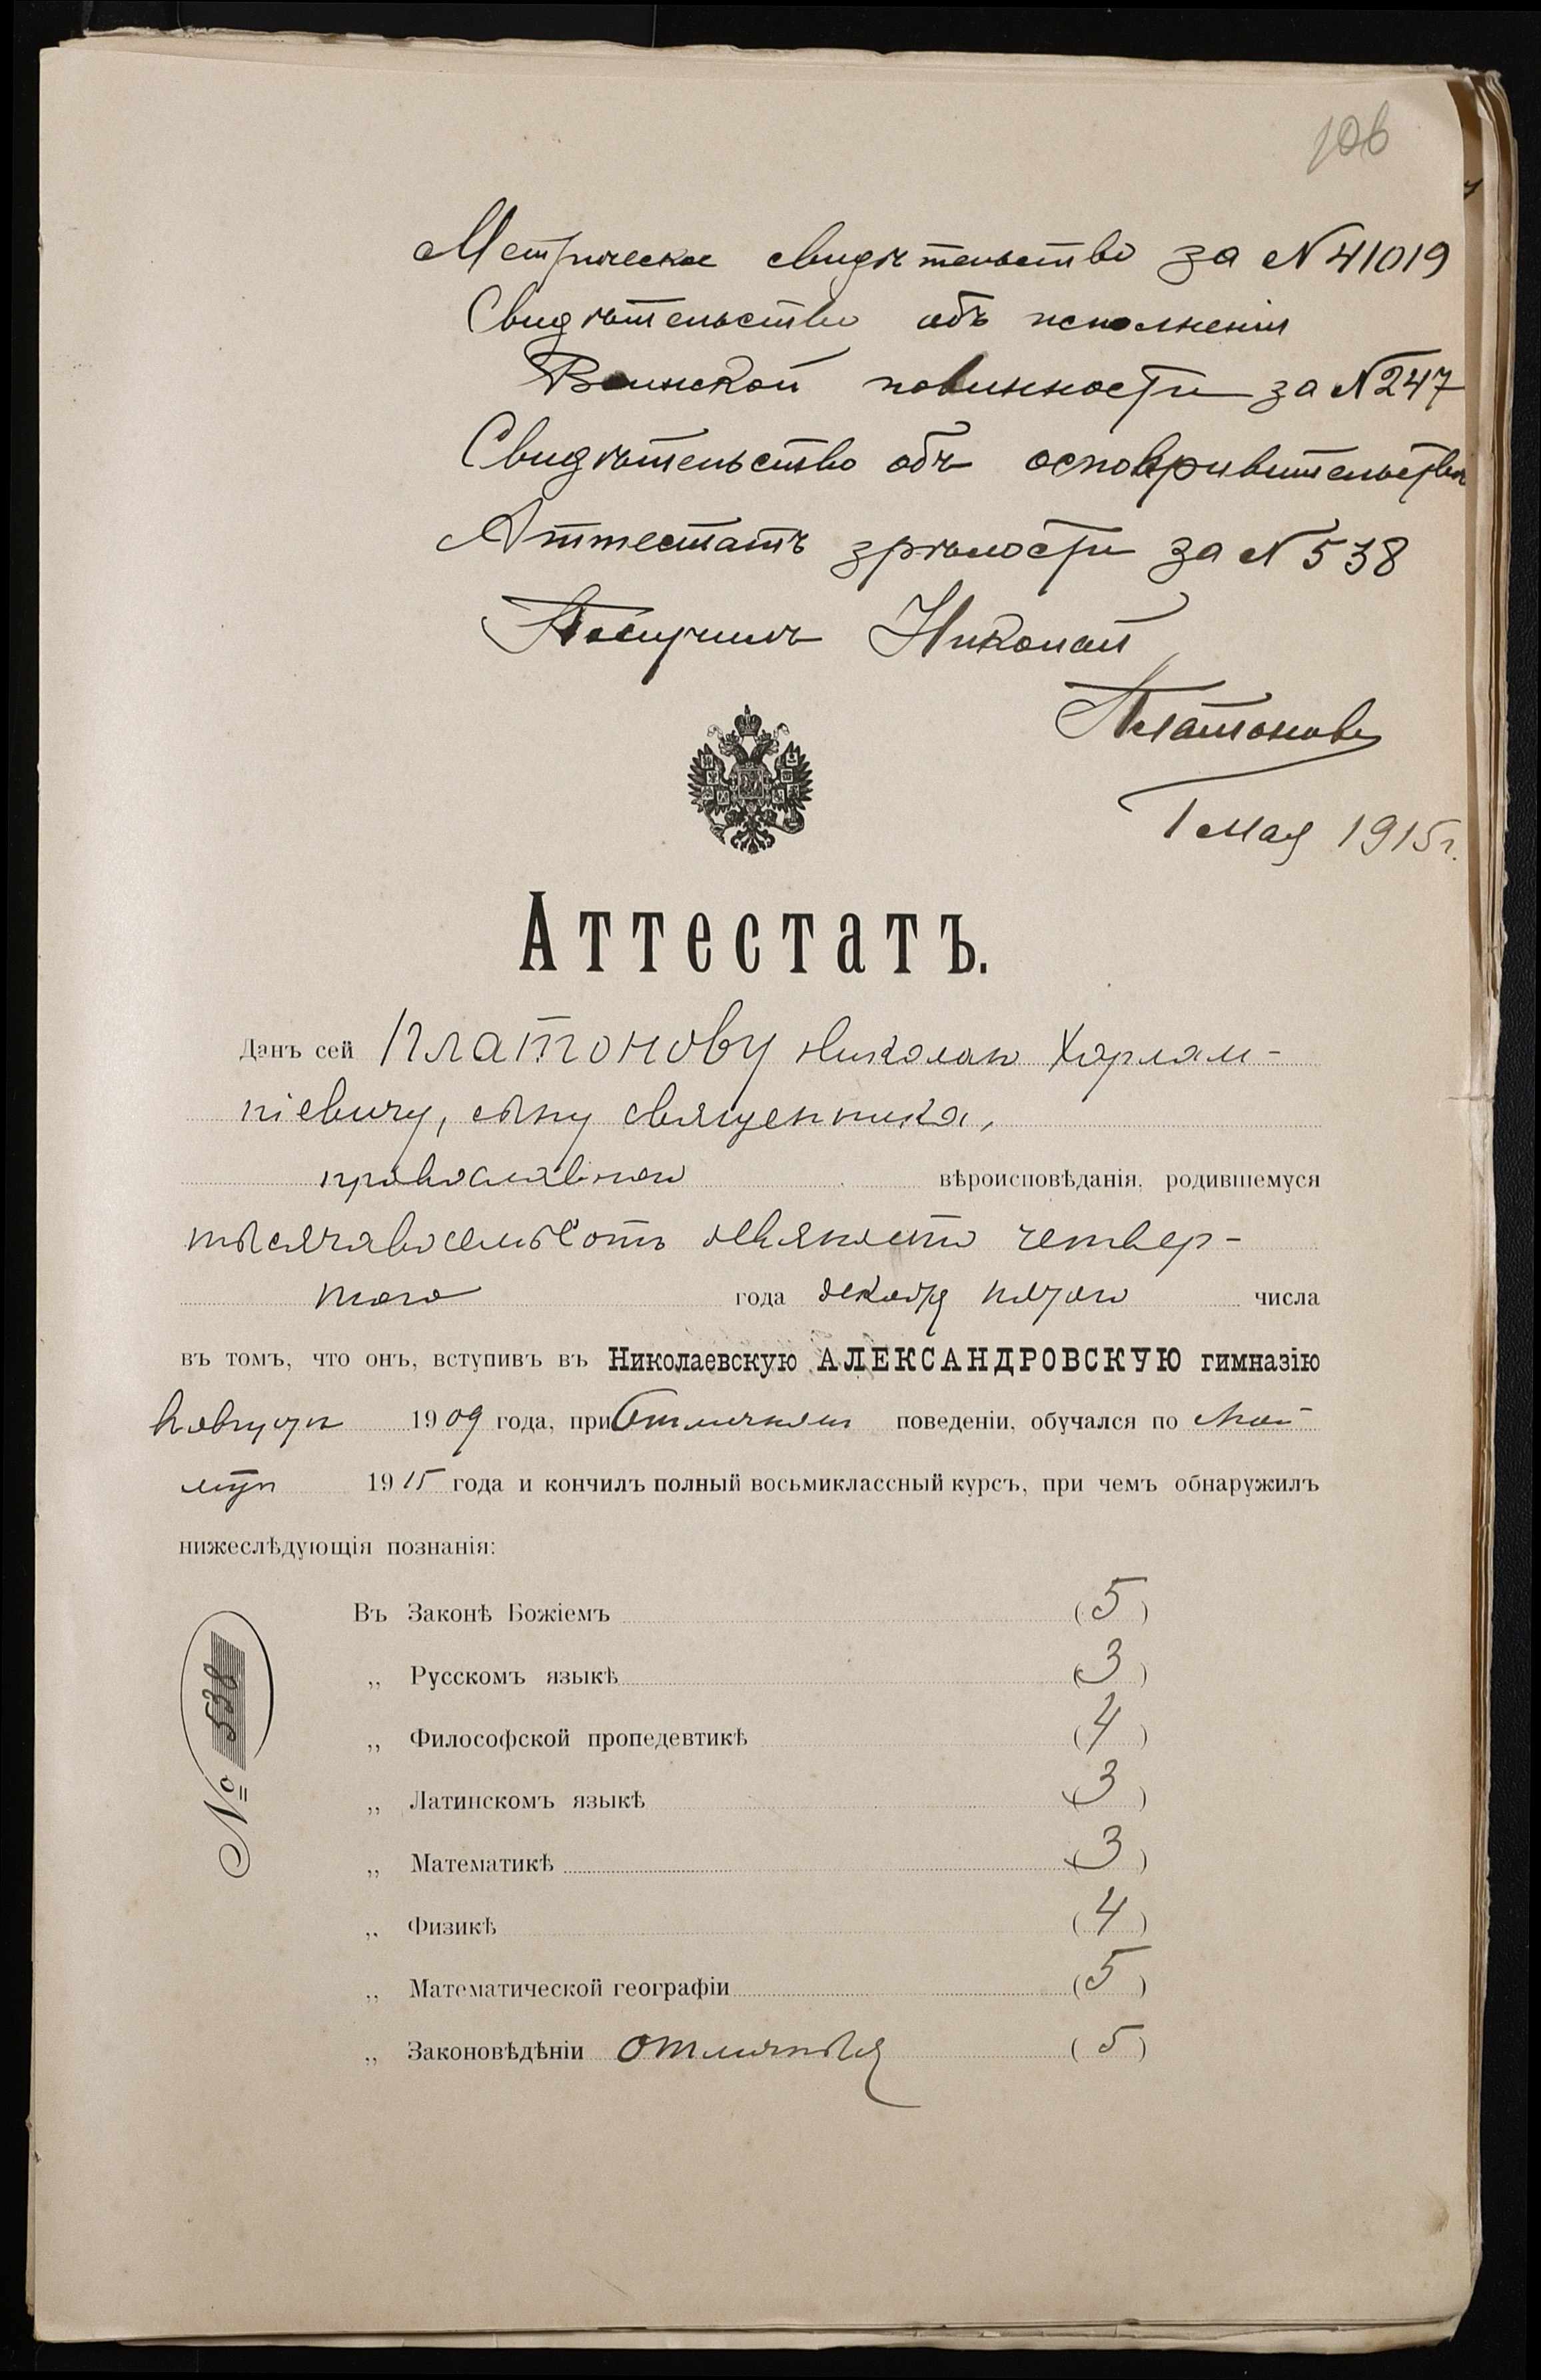 106
Метрическое свидѣтельство за № 41019
Свидѣтельство объ исполненіи
Воинской повинности за № 247
Свидѣтельство объ оспопрививательствѣ
Аттестатъ зрѣлости за № 538
Получилъ Николай
Платоновъ
1 мая 1915 г.
Аттестатъ.
Данъ сей Платонову Николаю Харлам-
піевичу, сыну священника,
православнаго вѣроисповѣданія, родившемуся
тысяча восемьсотъ девяносто четвер-
таго года декабря пятаго числа
въ томъ, что онъ, вступивъ въ Николаевскую АЛЕКСАНДРОВСКУЮ гимназію
въ августѣ 1909 года, при отличномъ поведеніи, обучался по май
1915 года и кончилъ полный восьмиклассный курсъ, при чемъ обнаружилъ
нижеслѣдующія познанія:
Въ Законѣ Божіемъ (5)
„ Русскомъ языкѣ (3)
„ Философской пропедевтикѣ (4)
„ Латинскомъ языкѣ (3)
„ Математикѣ (3)
„ Физикѣ (4)
„ Математической географіи (5)
„ Законовѣдѣніи отличныя (5)
№ 538